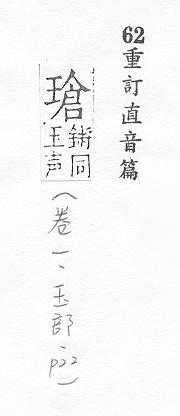 62重訂直音篇
瑲
鏘同
玉声
（卷一、玉部、p22）